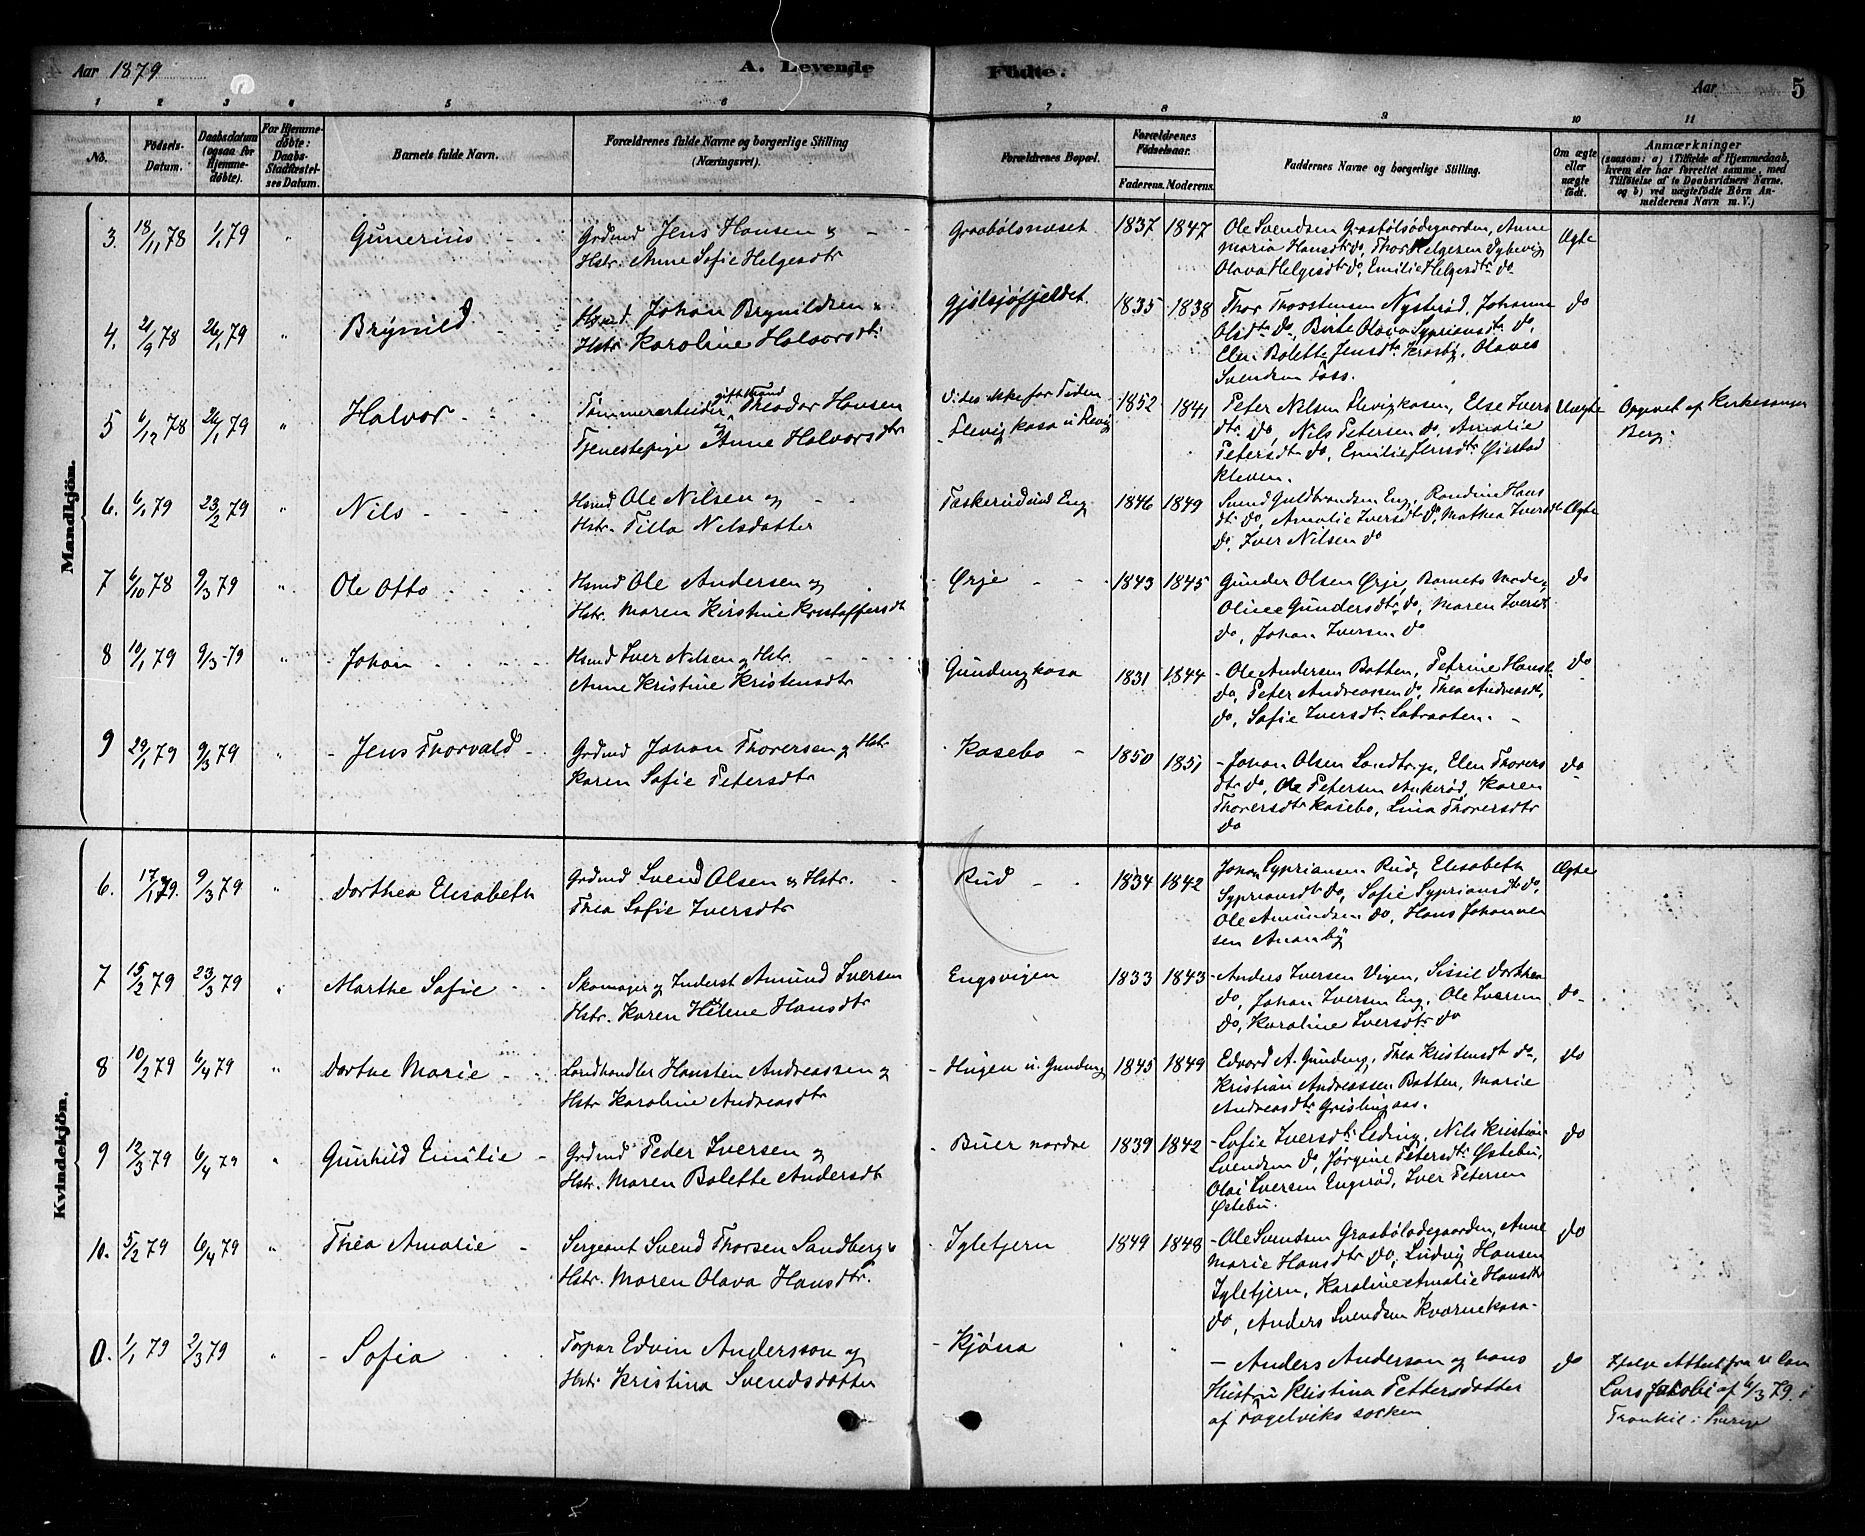 Aar 1879
A. Levende
Födte.
Aar
5
1 2 3 4 5 6 7 8 9 10 11
No.
Födsels-
Datum.
Daabsdatum
(ogsaa for
Hjemme-
döbte).
For Hjemme-
döbte:
Daabs-
Stadfæstel-
ses Datum.
Barnets fulde Navn.
Forældrenes fulde Navne og borgerlige Stilling
(Næringsvei).
Forældrenes Bopæl.
Forældrenes
Födselsaar.
Faderens. Moderens.
Faddernes Navne og borgerlige Stilling.
Om ægte
eller
uægte
födt.
Anmærkninger
(saasom: a) i Tilfælde af Hjemmedaab,
hvem der har forrettet samme, med
Tilföielse af to Daabsvidners Navne,
og b) ved uægtefödte Börn An-
melderens Navn m. V.)
Mandkjön.
3. 18/11 78 1/1 79 " Gunerius
Grdmd Jens Hansen &
Hstr. Anne Sofie Helgesdtr
Graabølsnæset 1837 1847
Ole Svendsen Graabølsødegaarden, Anne
Maria Hansdtr do, Thor Helgesen Dybevig
Olava Helgesdtr do, Emilie Helgesdtr do
Ægte
4. 21/9 78 26/1 79 " Brynild
Hsmd. Johan Brynildsen &
Hstr. Karoline Halvorsdtr
Gjølsjøfjeldet 1835 1838
Thor Thorstensen Nysterød, Johanne
Olsdtr do, Berte Olava Sypriansdtr do,
Elen Bolette Jensdtr Krosby, Olaves
Svendsen Foss.
do
5 6/12 78 26/1 79 " Halvor
Tømmerarbeider, gift Mand Theodor Hansen
Tjenestepige Anne Halvorsdtr
Vides ikke for Faderen
Slevigkasa u Slevig 1852 1841
Peter Nilsen Slevigkasen, Else Ivers
dtr do, Nils Petersen do, Amalie
Petersdtr do, Emilie Jensdtr Øiestad
Kleven.
Uægte
Opgivet af Kirkesanger
Berg.
6. 6/1 79 23/2 79 " Nils
Hsmd Ole Nilsen og
Hstr. Tilla Nilsdatter
Taskerud und Eng 1846 1849
Svend Guldbrandsen Eng, Randine Hans
dtr do, Amalie Iversdtr do, Mathea Iversdtr
do, Iver Nilsen do
Ægte
7 6/10 78 9/3 79 " Ole Otto
Hsmd Ole Andersen og
Hstr. Maren Kirstine Kristoffersdtr
Ørje 1843 1845
Gunder Olsen Ørje, Barnets Moder,
Olisee Gundersdtr do, Maren Iversdtr
do, Johan Iversen do
do
8 10/1 79 9/3 79 " Johan
Hsmd Iver Nilsen og Hstr.
Anne Kristine Kristensdtr
Gundengkasa 1831 1844
Ole Andersen Botten, Petrine Hansdtr
do, Peter Andreassen do, Thea Andreasdtr
do, Sofie Iversdtr
do
9 29/1 79 9/3 79 " Jens Thorvald
Grdmd Johan Thoresen og Hstr
Karen Sofie Petersdtr
Kasebo 1850 1851
Johan Olsen Sandtorp, Elen Thorers
dtr do, Ole Petersen Ankerød, Karen
Thorersdtr Kasebo, Lina Thorersdtr
do
do
Kvindekjön.
6. 17/1 79. 9/3 79 " Dorthea Elisabeth
Grdmd Svend Olsen og Hstr.
Thea Sofie Iversdtr
Rud 1834 1842
Johan Sypriansen Rud, Elisabeth
Sypriansdtr do, Sofie Sypriansdtr do,
Ole Amundsen do, Hans Johanne
sen Ananby
Ægte
7 15/2 79 23/3 79 " Marthe Sofie
Skomager og Inderst Amund Iversen
Hstr. Karen Helene Hansdtr
Engsvigen 1833 1843
Anders Iversen Vigen, Sissil Dorthea
do, Johan Iversen Eng, Ole Iversen
do, Karoline Iversdtr do
do
8 10/2 79 6/4 79 " Dorthe Marie
Landhandler Hansten Andreassen og
Hstr Karoline Andreasdtr
Hugen u. Gundeng 1845 1849
Edvard A. Gundeng, Thea Kristensdtr do,
Kristian Andreassen Botten, Marie
Andreasdtr Grislingaas.
do
9 12/3 79 6/4 79 " Gunhild Emilie
Grdmd Peder Iversen og
Hstr. Maren Bolette Andersdtr
Buer nordre 1839 1842
Sofie Iversdtr Leding, Nils Kristian
Svendsen do, Jørgine Petersdtr Østebu,
Olai Iversen Engerød, Iver Petersen
Østebu.
do
10. 5/2 79 6/4 79 " Thea Amalie
Sergeant Svend Thorsen Sandberg &
Hstr. Maren Olava Hansdtr.
Igletjern 1849 1848
Ole Svendsen Graabølsødegaarden, Anne
Marie Hansdtr do, Ludvig Hansen
Igletjern, Karoline Amalie Hansdtr
do, Anders Svendsen Kvernekasa
do
0. 1/1 79 2/3 79 " Sofia
Torpar Edvin Andersson og
Hstr Kristina Svendsdotter
Kjøna " "
Anders Anderson og hans
Hustru Kristina Pettersdotter
af Fågelviks socken
do
Ifølge Attest fra
Lars Jakobi af 6/3 79 i
Trankil i Sverige